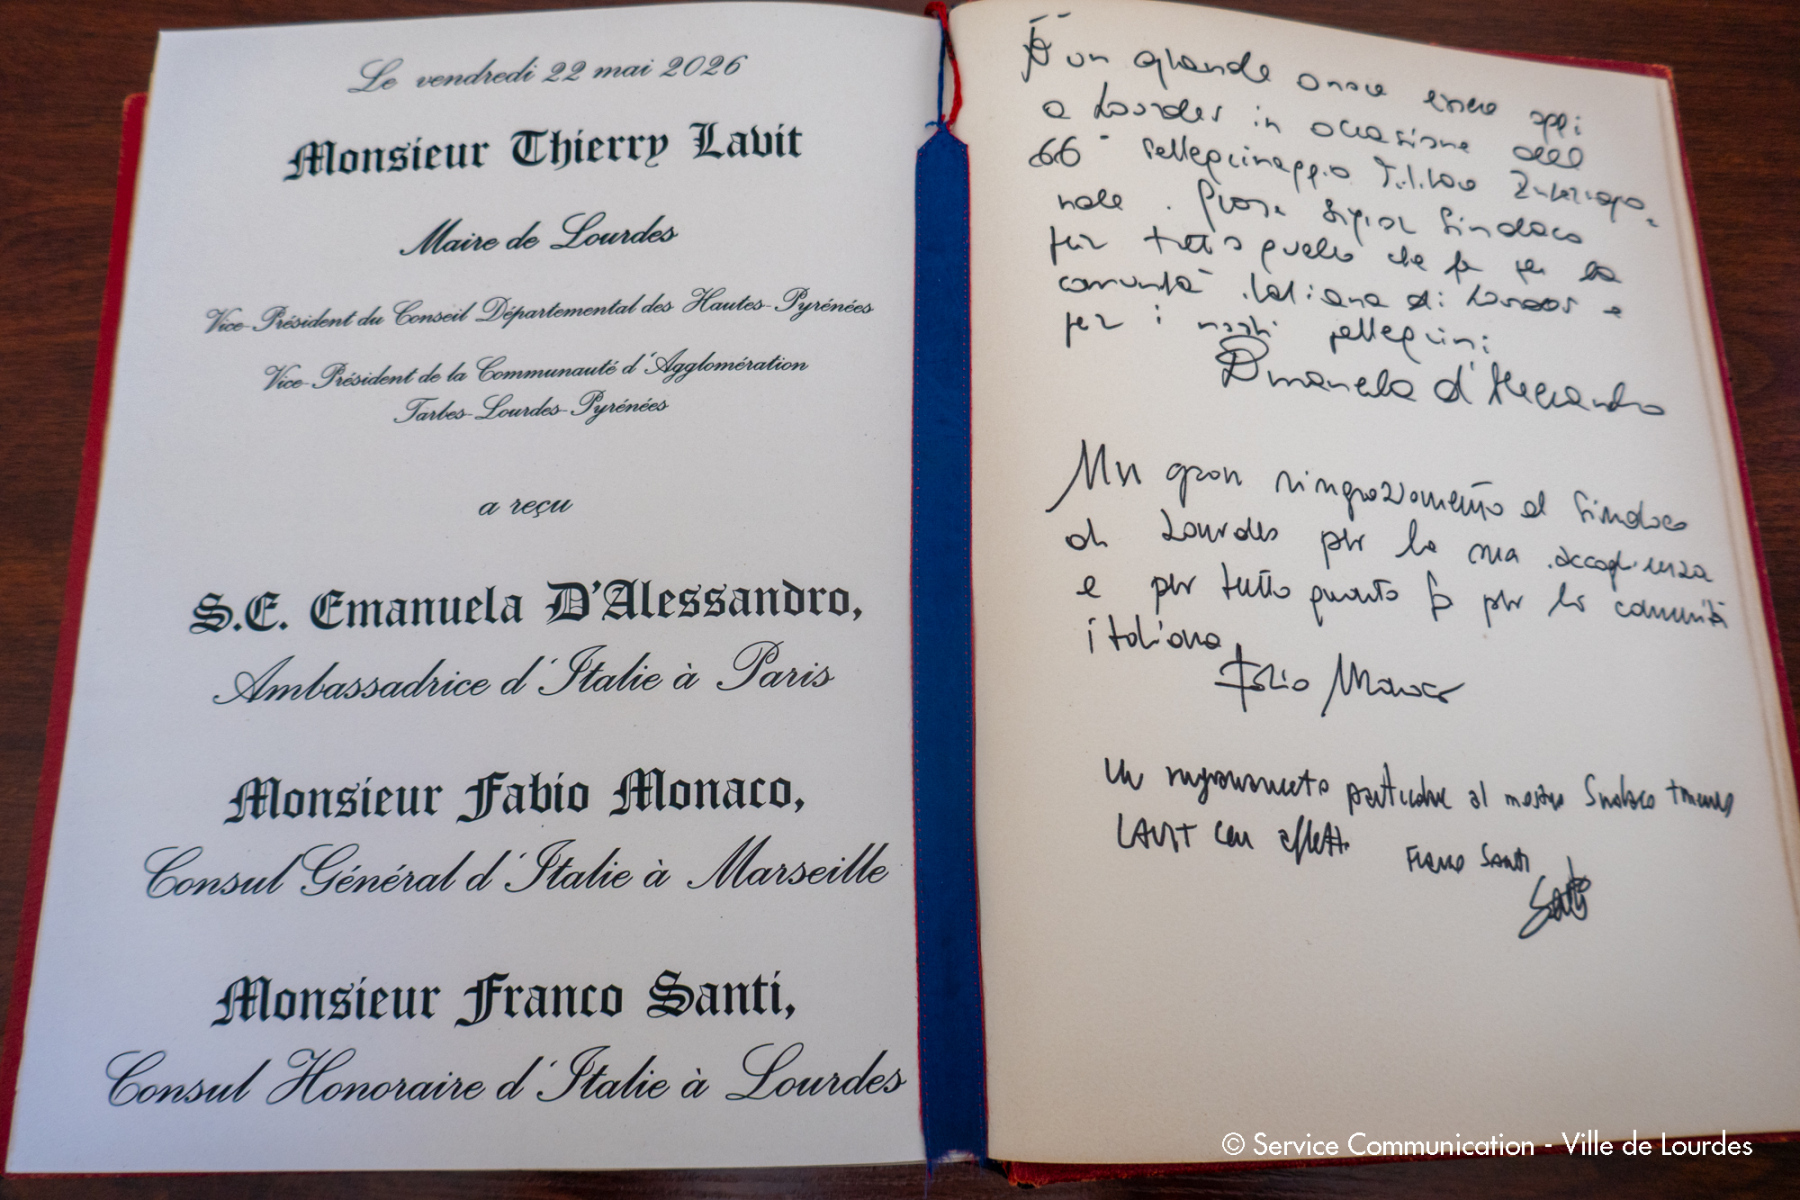 Le vendredi 22 mai 2026
Monsieur Thierry Lavit
Maire de Lourdes
Vice-Président du Conseil Départemental des Hautes-Pyrénées
Vice-Président de la Communauté d'Agglomération
Tarbes-Lourdes-Pyrénées
a reçu
S.E. Emanuela D'Alessandro,
Ambassadrice d'Italie à Paris
Monsieur Fabio Monaco,
Consul Général d'Italie à Marseille
Monsieur Franco Santi,
Consul Honoraire d'Italie à Lourdes
È un grande onore essere oggi
a Lourdes in occasione del
66° Pellegrinaggio Militare Internazio-
nale. Grazie Signor Sindaco
per tutto quello che fa per la
comunità italiana di Lourdes e
per i nostri pellegrini
Emanuela d'Alessandro
Un gran ringraziamento al Sindaco
di Lourdes per la sua accoglienza
e per tutto quanto fa per la comunità
italiana
Fabio Monaco
Un ringraziamento particolare al nostro Sindaco
LAVIT con affetto Franco Santi
Santi
© Service Communication - Ville de Lourdes